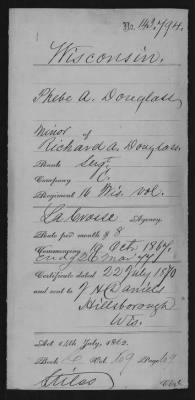 No. 143.794.
Wisconsin.
Phebe A. Douglass
Minor of
Richard A. Douglass
Rank Serg.
Company C.
Regiment 16 Wis. Vol.
La Crosse Agency.
Rate per month $ 8
Commencing 19 Oct. 1867.
Ending 26 Mar 77
Certificate dated 22 July 1870
and sent to J H Daniels
Hillsborough
Wis.
Act 14th July, 1862.
Book Vol. Page
Stiles Clk.